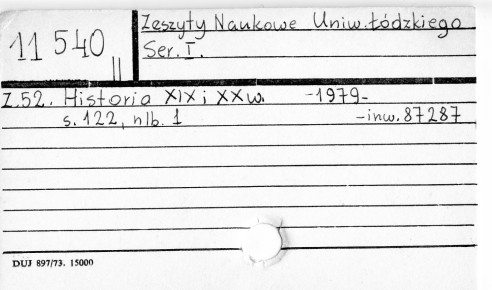 Zeszyty Naukowe Uniw. Łódzkiego
11 540 II
Ser. I.
Z.52. Historia XIX i XX w. -1979-
s. 122, nlb. 1 -inw. 87287
DUJ 897/73. 15000